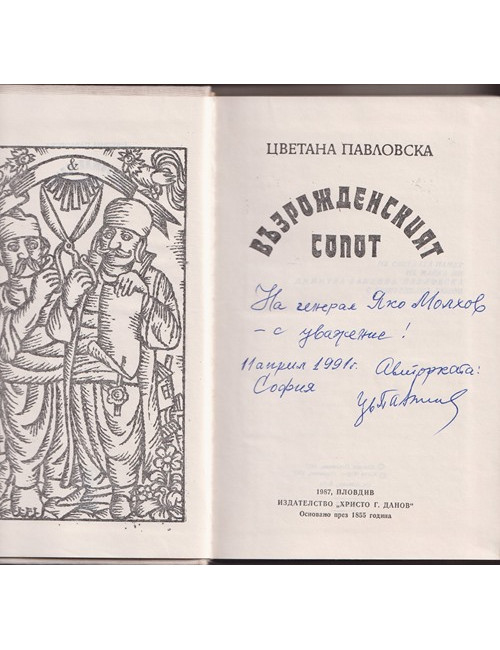 &
ЦВЕТАНА ПАВЛОВСКА
ВЪЗРОЖДЕНСКИЯТ
СОПОТ
На генерал Яко Молхов
– с уважение!
11 април 1991 г. Авторката:
София
1987, ПЛОВДИВ
ИЗДАТЕЛСТВО „ХРИСТО Г. ДАНОВ“
Основано през 1855 година